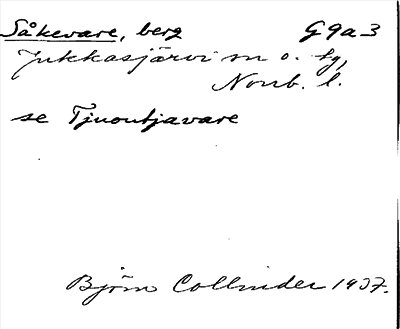 Såkevare, berg G9a3
Jukkasjärvi sn o. tg,
Norrb. l.
se Tjuoutjavare
Björn Collinder 1937.